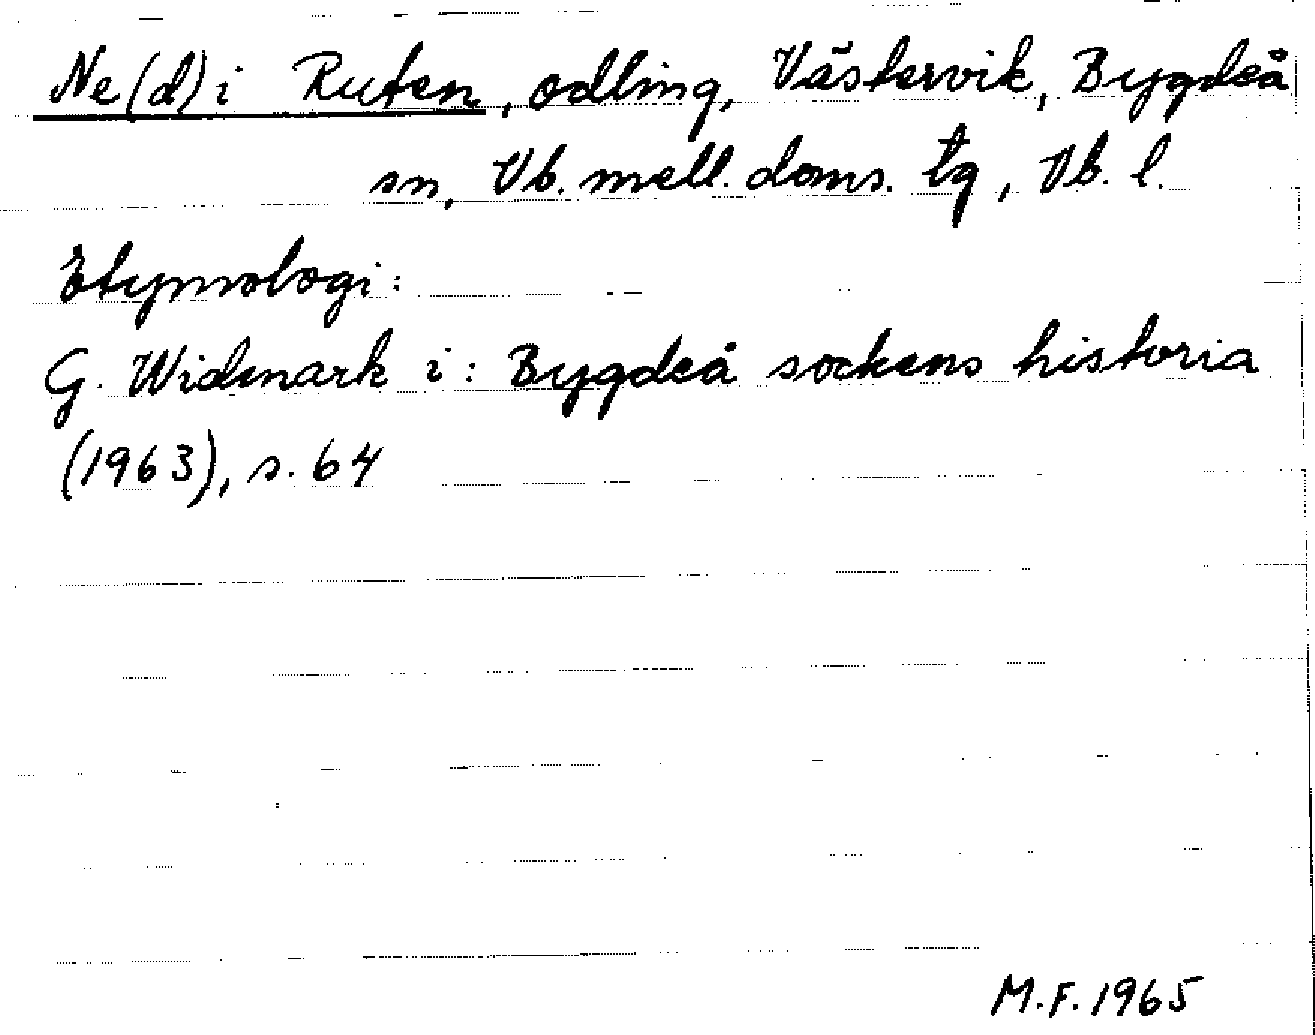 Ne(d) i Ruten, odling, Västervik, Bygdeå
sn, Vb. mell. doms. tg, Vb. l.
Etymologi:
G. Widmark i: Bygdeå sockens historia
(1963), s. 64
M.F. 1965